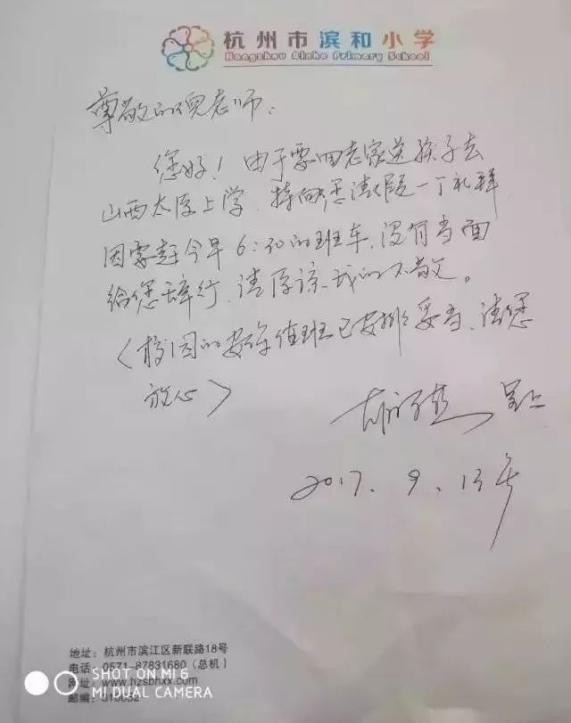 杭州市滨和小学
Hangzhou Binhe Primary School
尊敬的倪老师：
您好！由于要回老家送孩子去
山西太原上学，特向您请假一个礼拜
因要赶今早6:30的班车，没有当面
给您辞行，请原谅我的不敬。
（校园的安保值班已安排妥当，请您
放心）
呈上
2017.9.13号
地址：杭州市滨江区新联路18号
电话：0571-87831680（总机）
www.hzsbhxx.com
邮编：310052
SHOT ON MI 6
MI DUAL CAMERA